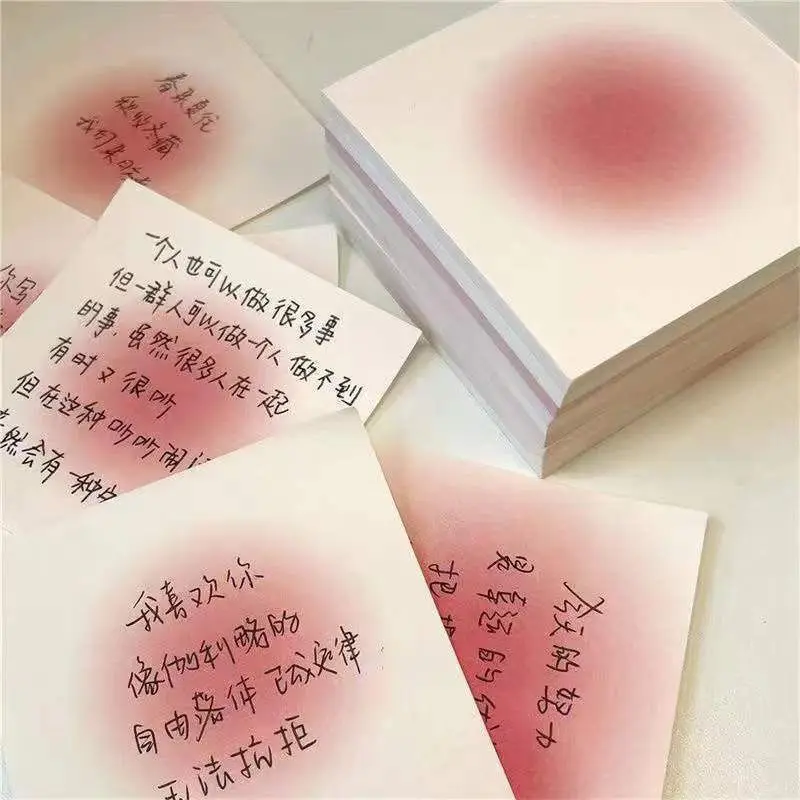 春来夏往
秋收冬藏
我们来日
你写
一个人也可以做很多事
但一群人可以做一个人做不到
的事,虽然很多人在一起
有时又很吵
但在这种吵吵闹
然会有一种
我喜欢你
像伽利略的
自由落体 已成定律
无法抗拒
的努力
是幸运的